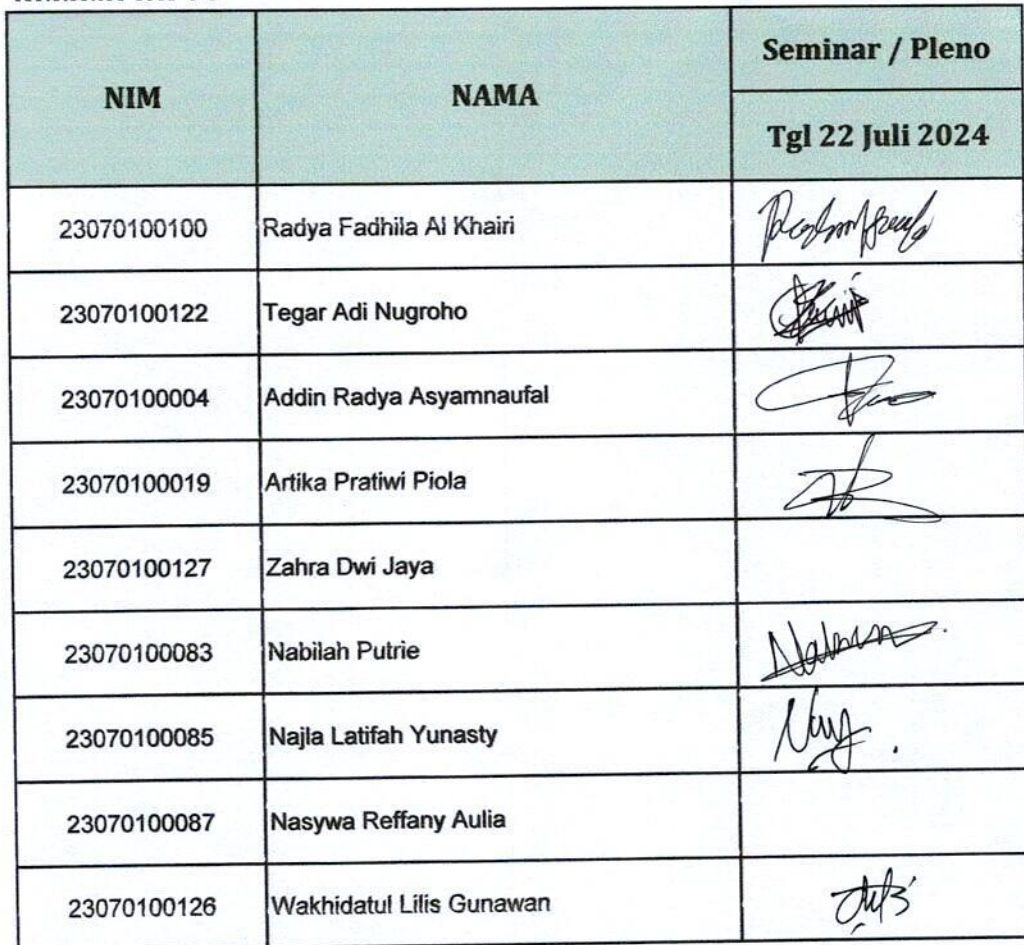 NIM
NAMA
Seminar / Pleno
Tgl 22 Juli 2024
23070100100 Radya Fadhila Al Khairi
23070100122 Tegar Adi Nugroho
23070100004 Addin Radya Asyamnaufal
23070100019 Artika Pratiwi Piola
23070100127 Zahra Dwi Jaya
23070100083 Nabilah Putrie
23070100085 Najla Latifah Yunasty
23070100087 Nasywa Reffany Aulia
23070100126 Wakhidatul Lilis Gunawan